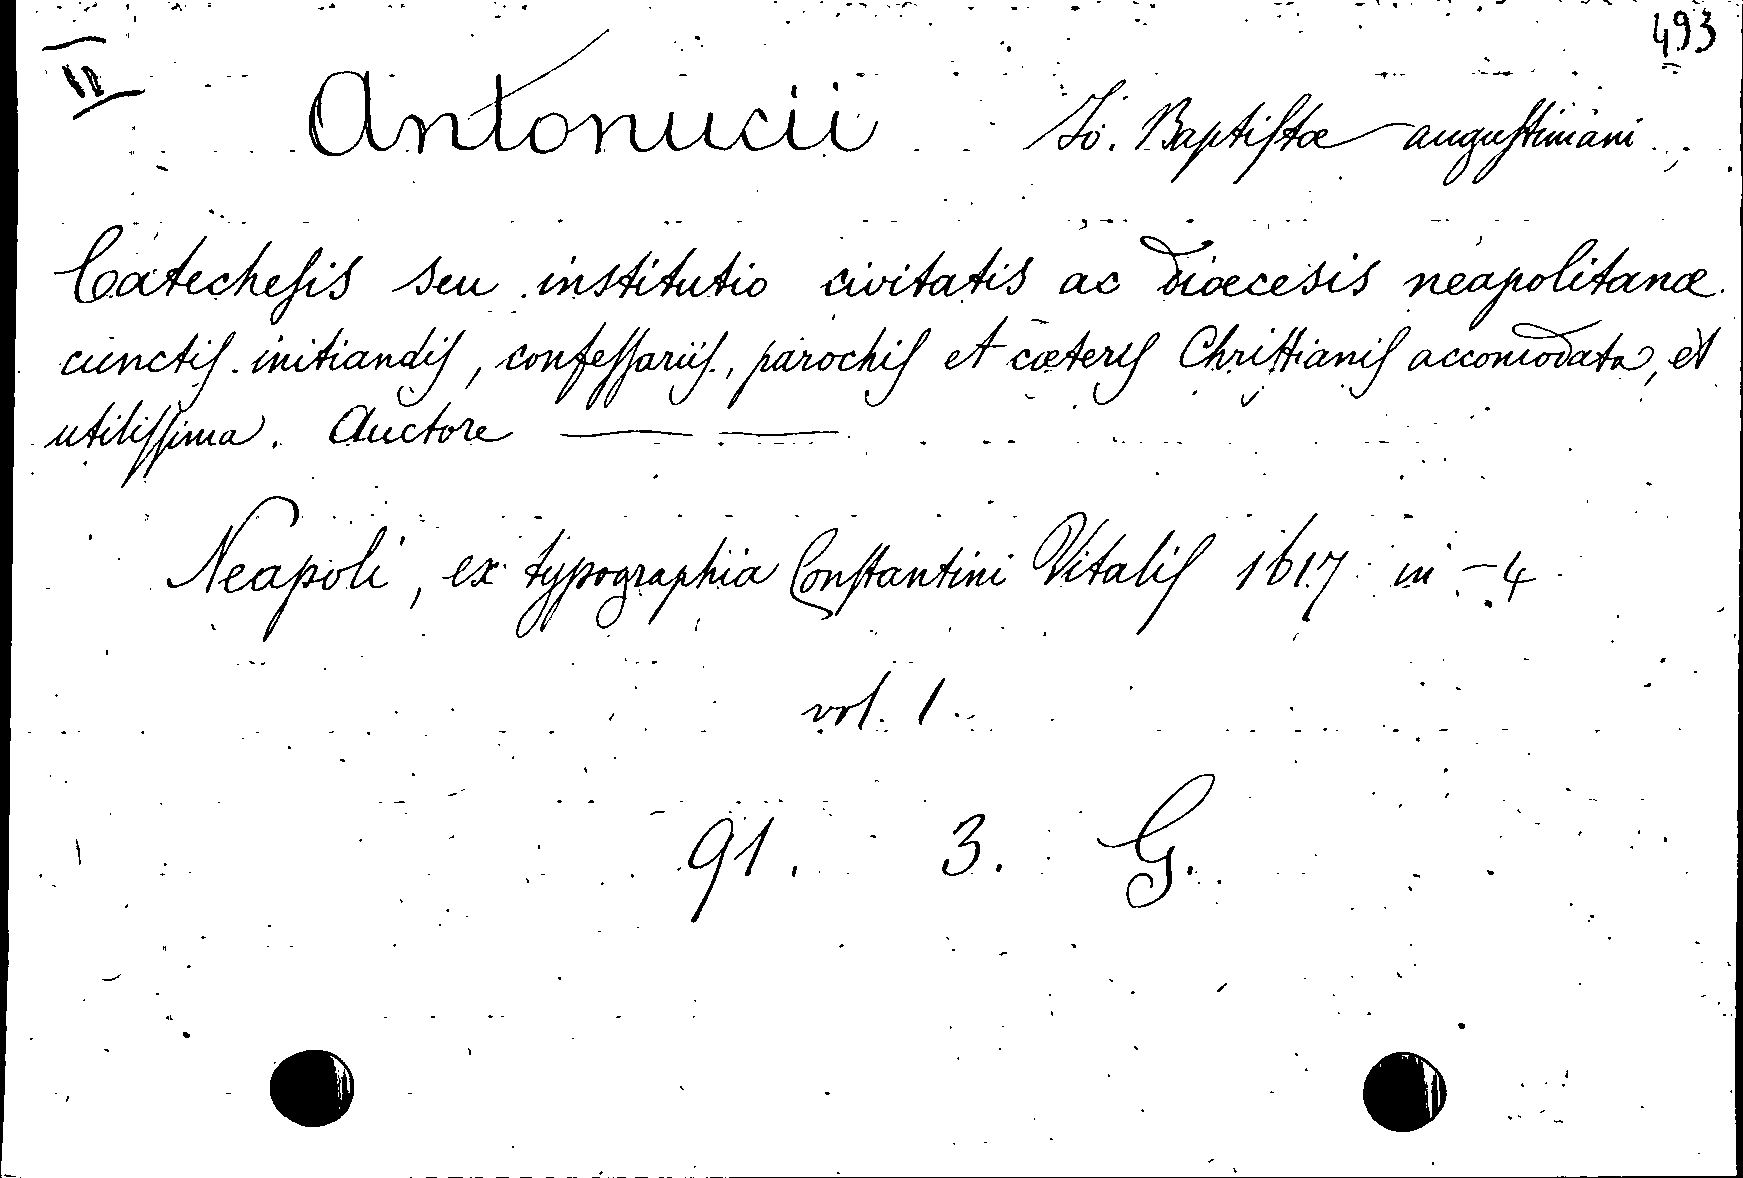 493
II
Antonucii Jo. Baptiſtæ auguſtiniani
Catecheſis seu institutio civitatis ac diœcesis neapolitanæ
cunctiſ initiandiſ, confeſſariiſ, parochiſ et cœteriſ Chriſtianiſ accomodata, et
utiliſſima. Auctore — —
Neapoli, ex typographia Conſtantini Vitaliſ 1617 in -4
vol. 1.
91. 3. G.